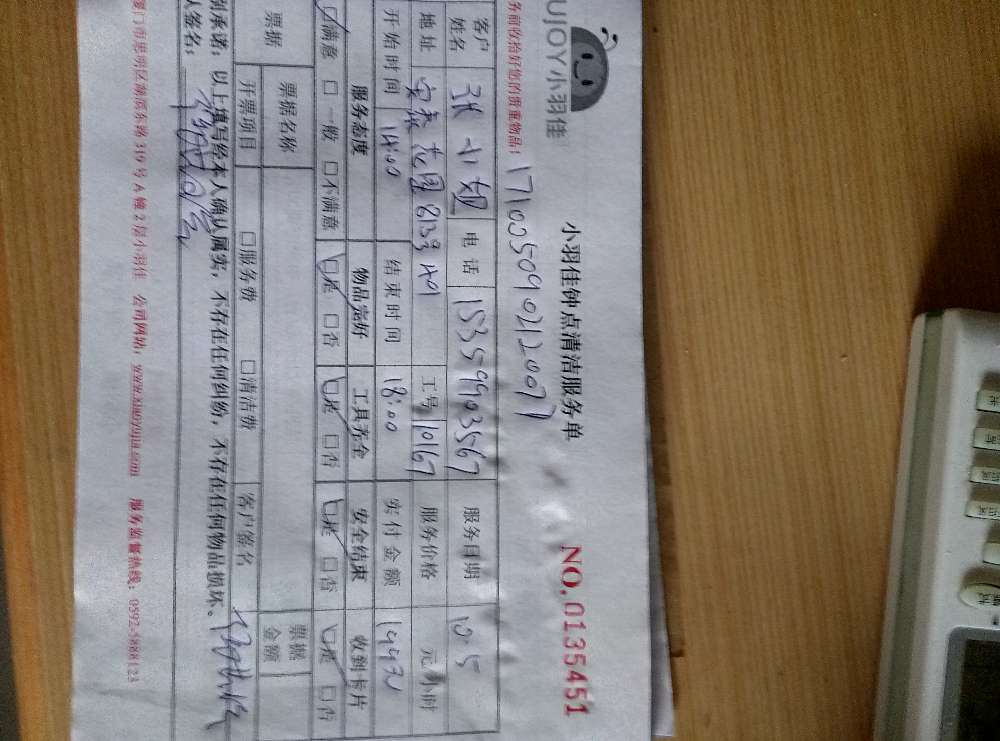 UJOY小羽佳
小羽佳钟点清洁服务单
NO.0135451
务前收拾好您的贵重物品:
客户姓名 张小姐 电话 15359903567 服务日期 10.5
地址 花园 工号 10167 服务价格 元/小时
开始时间 14:00 结束时间 18:00 实付金额
服务态度 物品完好 工具齐全 安全结束 收到卡片
满意 □一般 □不满意 □是 □否 □是 □否 □是 □否 □是 □否
票据 票据名称 票据金额
开票项目 □服务费 □清洁费 客户签名
别承诺:以上填写经本人确认属实,不存在任何纠纷,不存在任何物品损坏、
人签名:
厦门市思明区湖滨东路319号A幢2层小羽佳 公司网站:www.xiaoyujia.com 服务监督热线:0592-5888123